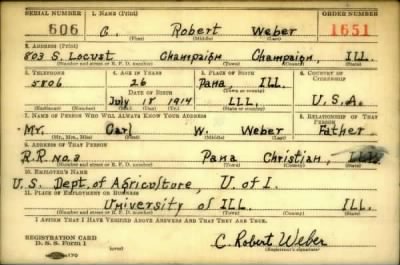 SERIAL NUMBER 1. NAME (Print) ORDER NUMBER
606 C. Robert Weber 1651
(First) (Middle) (Last)
2. ADDRESS (Print)
803 S. Locust Champaign Champaign, ILL.
(Number and street or R. F. D. number) (Town) (County) (State)
3. TELEPHONE 4. AGE IN YEARS 5. PLACE OF BIRTH 6. COUNTRY OF CITIZENSHIP
5806 26 Pana, ILL.
DATE OF BIRTH (Town or county)
July 18 1914 LLL. U.S.A.
(Mo.) (Day) (Yr.) (State or country)
7. NAME OF PERSON WHO WILL ALWAYS KNOW YOUR ADDRESS 8. RELATIONSHIP OF THAT PERSON
Mr. Carl W. Weber Father
(Mr., Mrs., Miss) (First) (Middle) (Last)
9. ADDRESS OF THAT PERSON
R.R. No. 3 Pana Christian, ILL.
(Number and street or R. F. D. number) (Town) (County) (State)
10. EMPLOYER'S NAME
U.S. Dept. of Agriculture, U. of I.
11. PLACE OF EMPLOYMENT OR BUSINESS
University of ILL. ILL.
(Number and street or R. F. D. number) (Town) (County) (State)
I AFFIRM THAT I HAVE VERIFIED ABOVE ANSWERS AND THAT THEY ARE TRUE.
REGISTRATION CARD
D. S. S. Form 1
C. Robert Weber
(Registrant's signature)